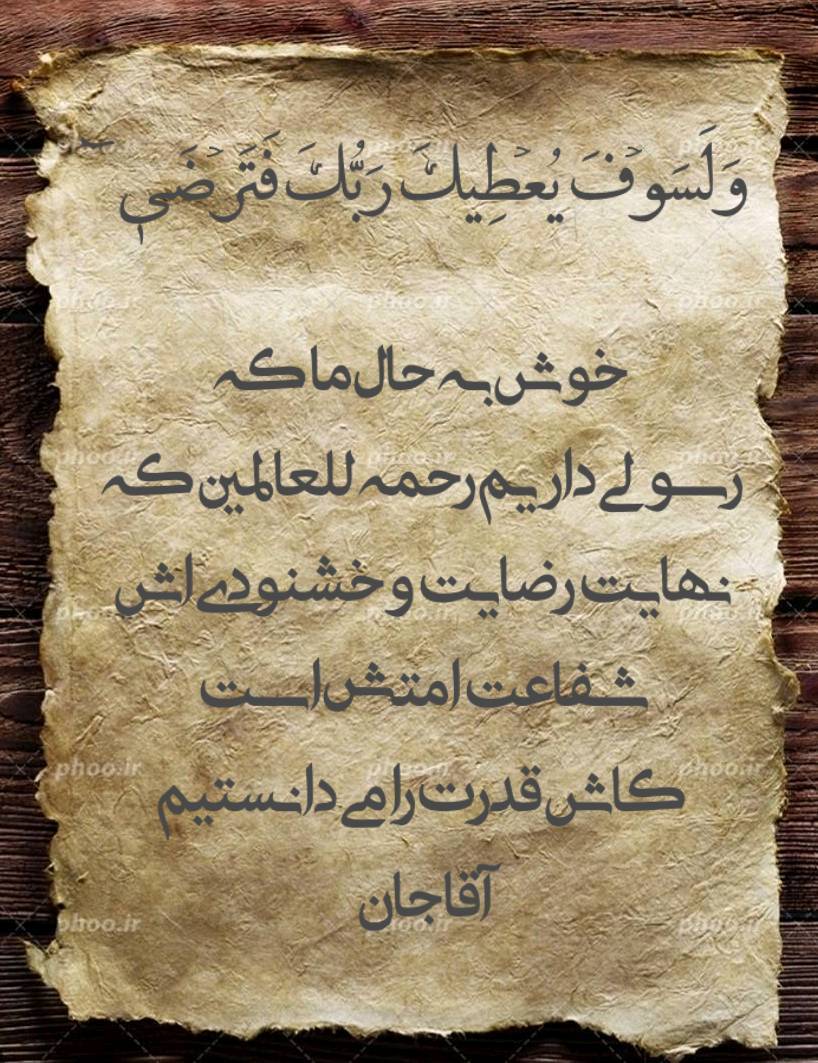 وَلَسَوْفَ يُعْطِيكَ رَبُّكَ فَتَرْضَىٰ
خوش به حال ما که
رسولی داریم رحمه للعالمین که
نهایت رضایت و خشنودی اش
شفاعت امتش است
کاش قدرت را می دانستیم
آقاجان
phoo.ir